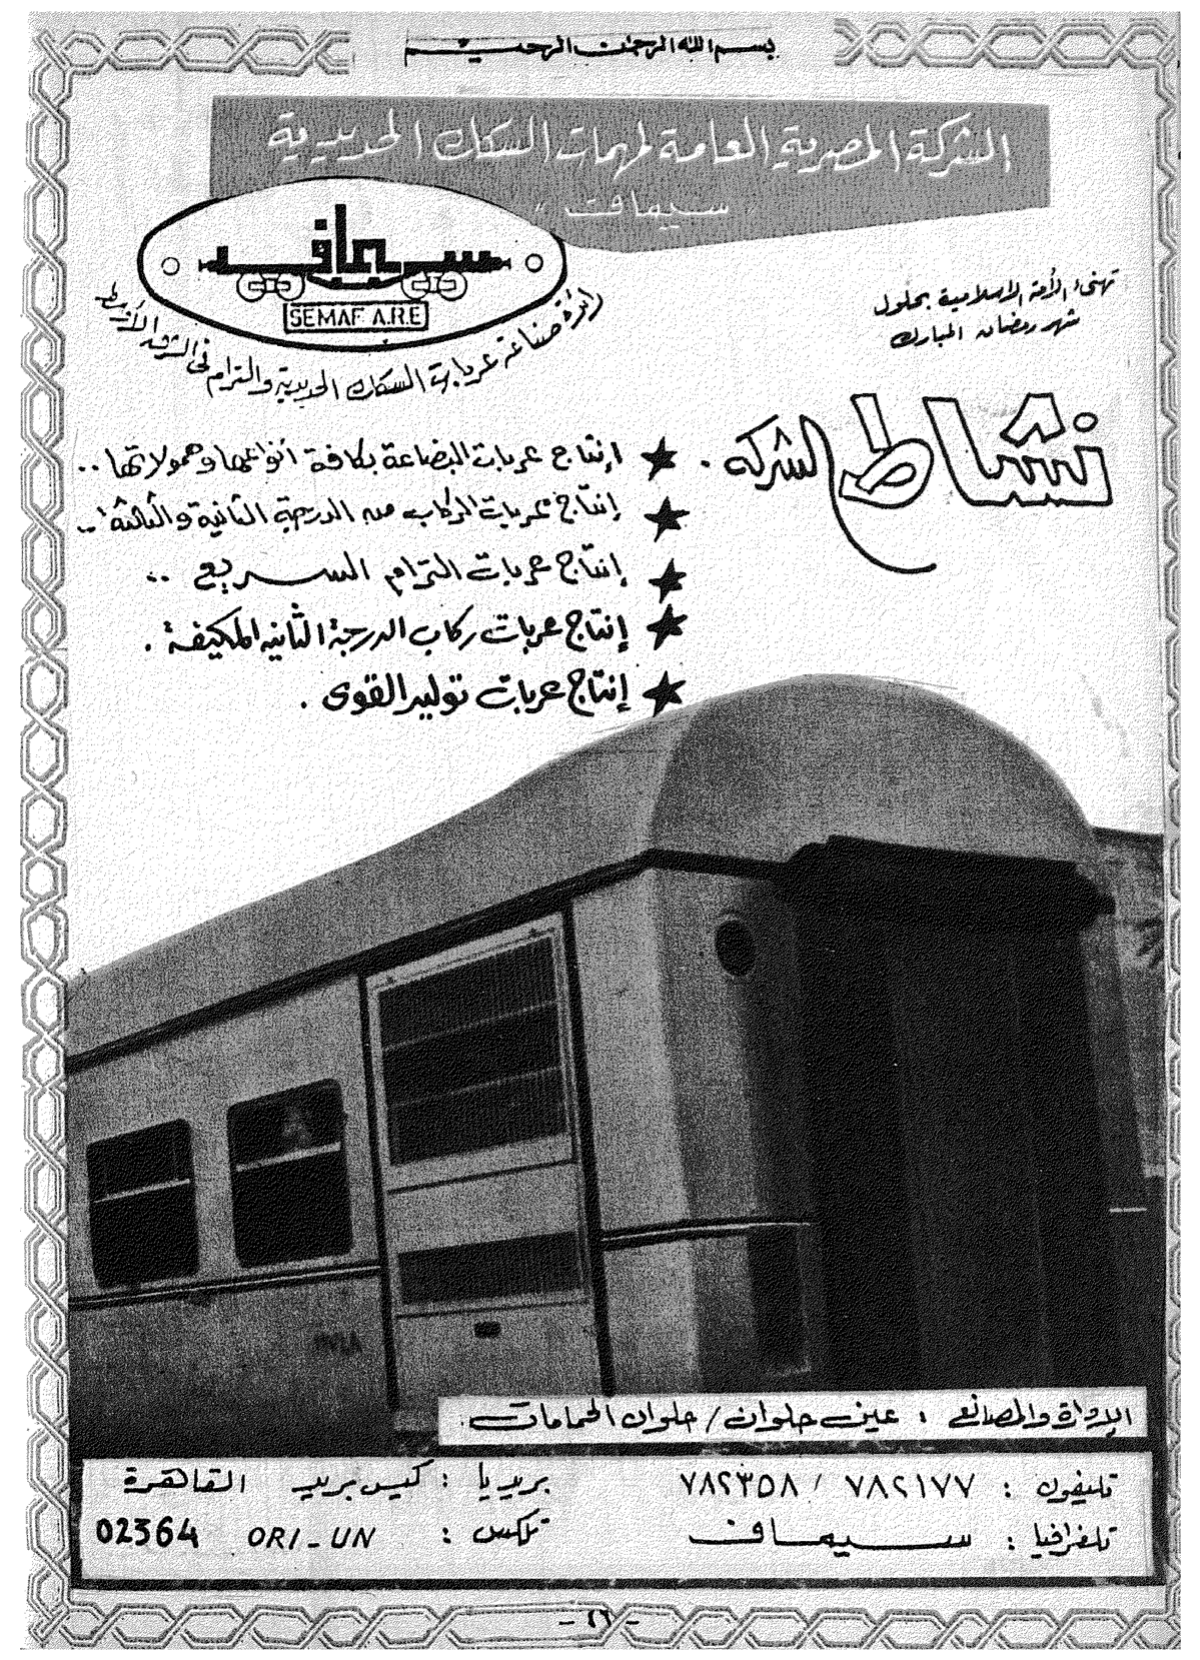 بسم الله الرحمن الرحيم
الشركة المصرية العامة لمهمات السكك الحديدية
" سيمافت "
سيماف
SEMAF A.R.E
رائدة صناعة عربات السكك الحديدية والترام فى الشرق الأوسط
تهنىء الأمة الاسلامية بحلول
شهر رمضان المبارك
نشاط الشركه .
★ إنتاج عربات البضاعة بكافة أنواعها وحمولاتها ..
★ إنتاج عربات الركاب من الدرجة الثانية والثالثة ..
★ إنتاج عربات الترام السريع ..
★ إنتاج عربات ركاب الدرجة الثانيه المكيفة .
★ إنتاج عربات توليد القوى .
الإدارة والمصانع : عين حلوان / حلوان الحمامات .
تليفون : ٧٨٢١٧٧ / ٧٨٢٣٥٨ بريديا : كيس بريد القاهرة
تلغرافيا : سيماف تلكس : ORI_UN 02364
- ٤٦ -